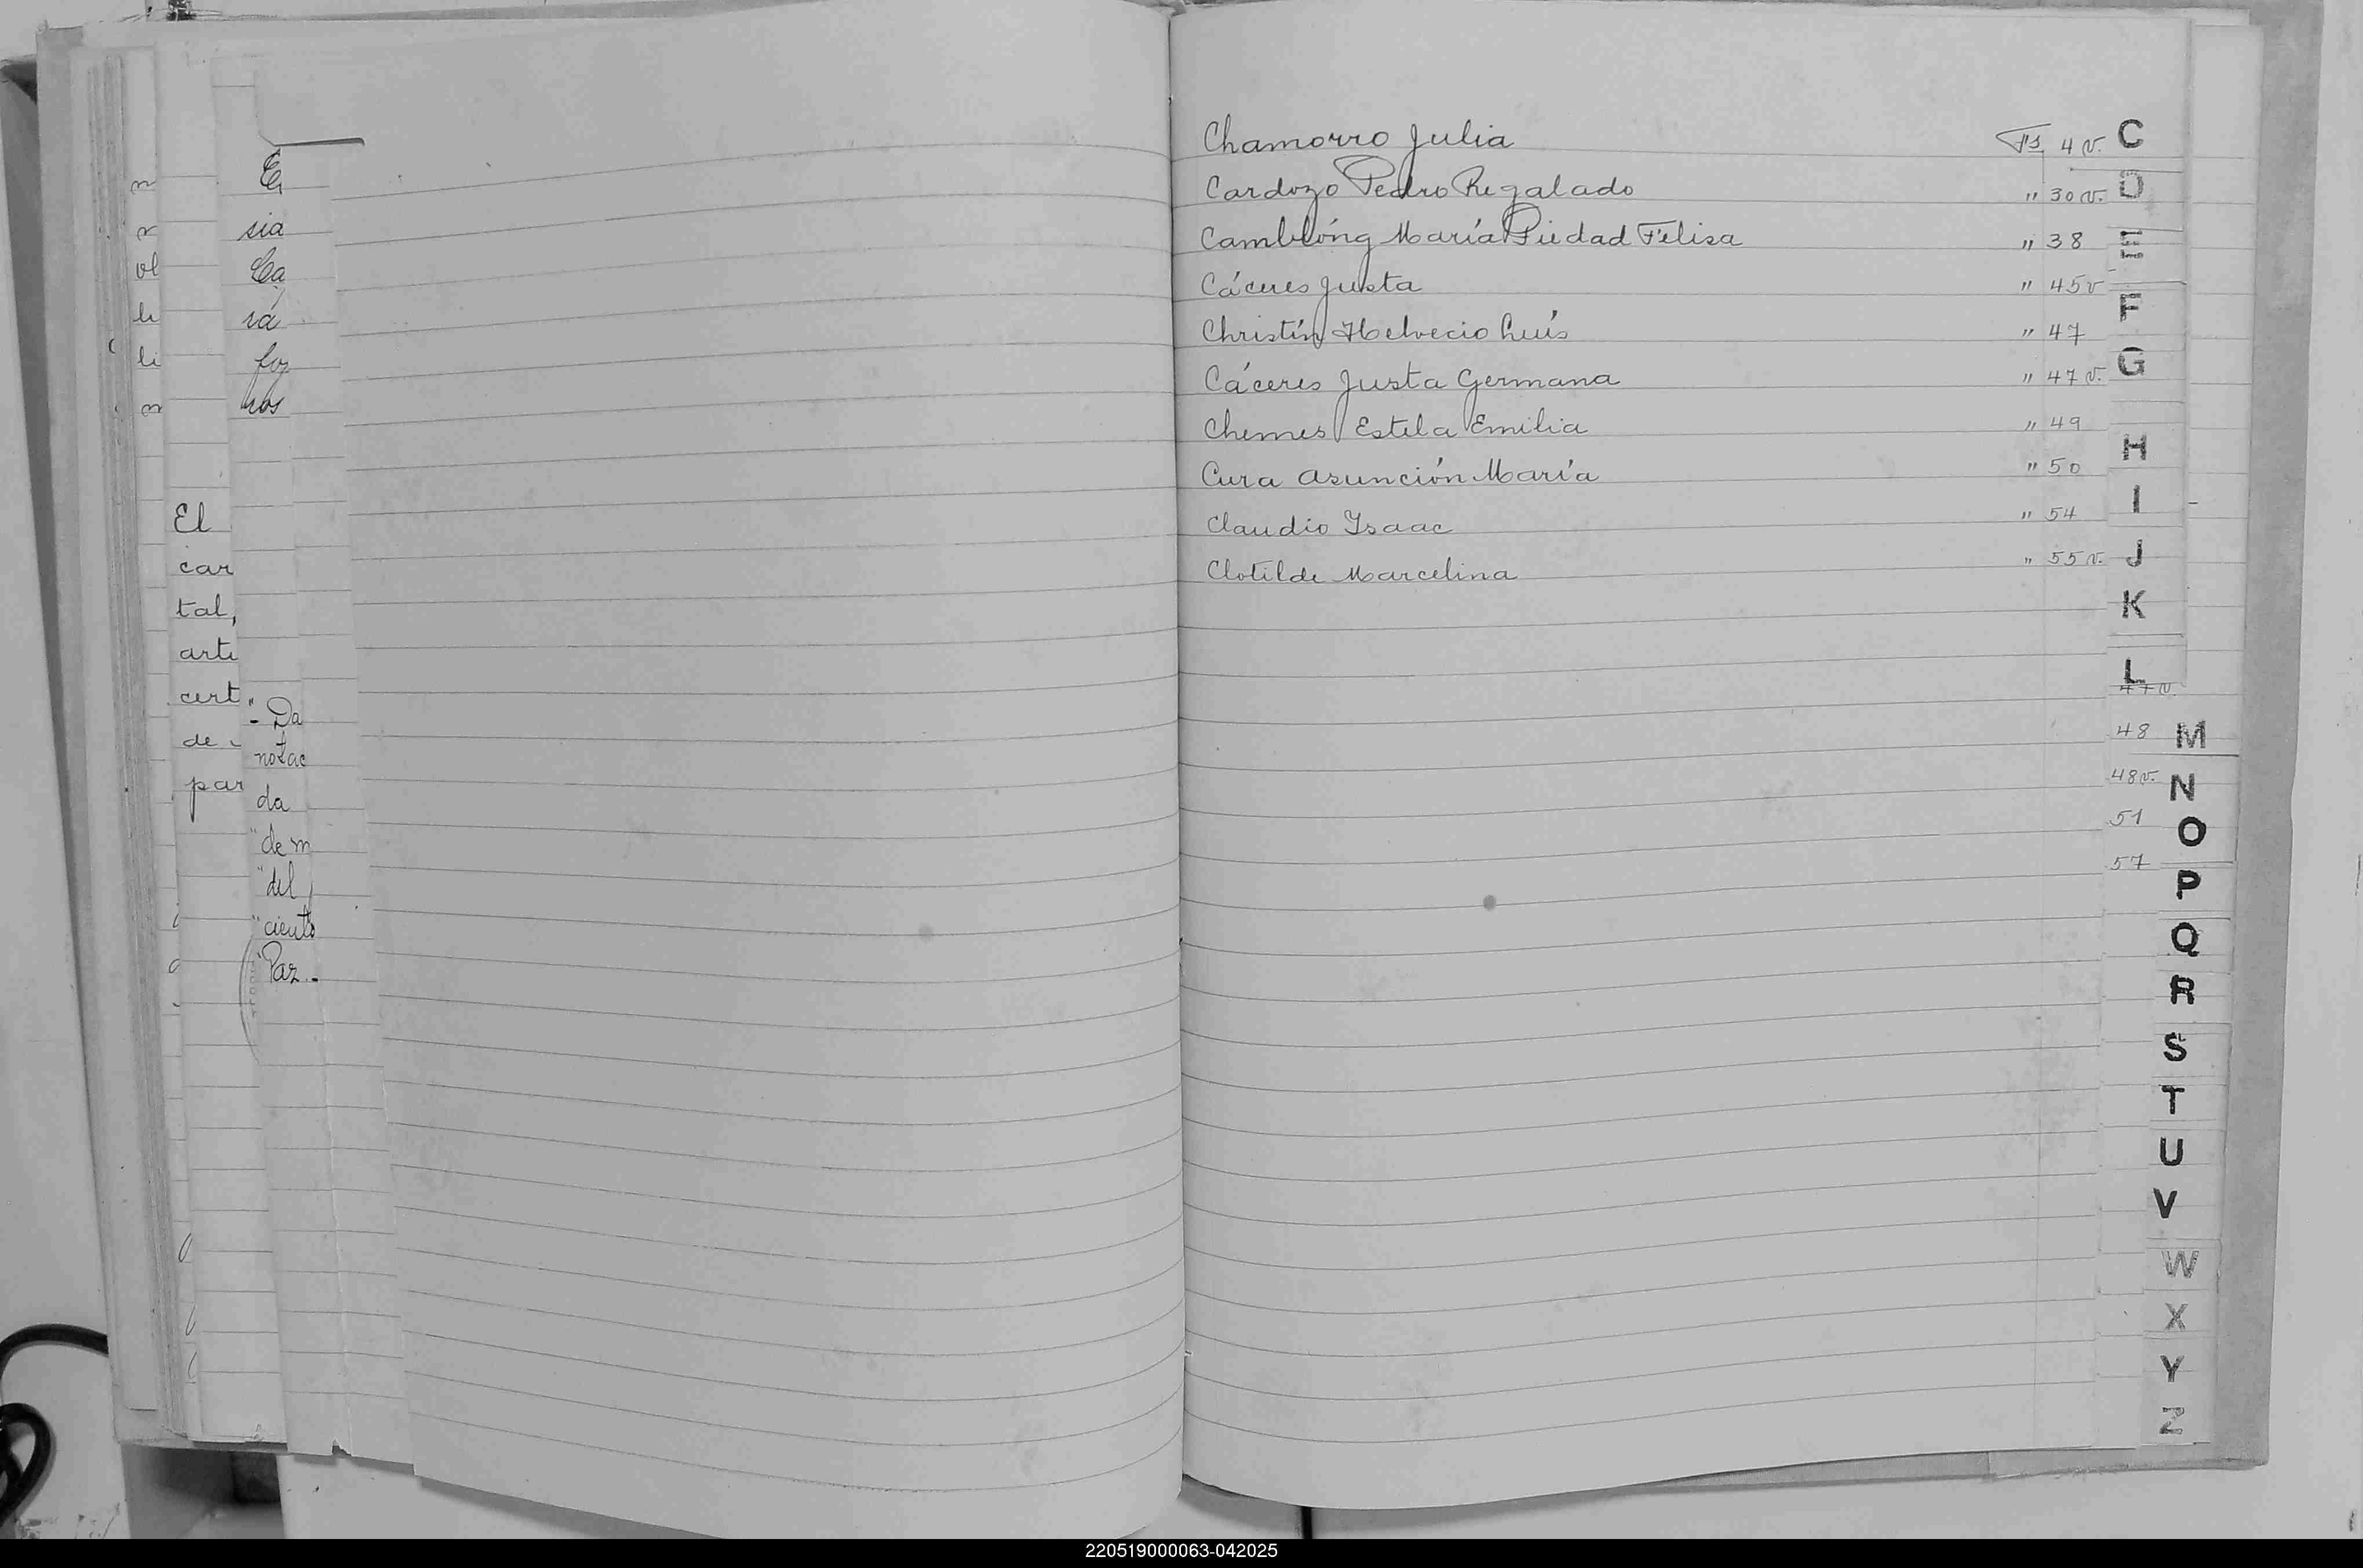 El
car
tal,
arti
cert
de
par
sia
Ca
rá
for
nos
"
- Da
notac
da
"de m
"del
"ciento
"Paz.-
Chamorro Julia Fs 4 v.
Cardozo Pedro Regalado " 30 v.
Camblóng María Piedad Felisa " 38
Cáceres Justa " 45 v
Christín Helvecio Luís " 47
Cáceres Justa Germana " 47 v.
Chemes Estela Emilia " 49
Cura Asunción María " 50
Claudio Ysaac " 54
Clotilde Marcelina " 55 v.
47 v.
48
48 v.
51
57
C
D
E
F
G
H
I
J
K
L
M
N
O
P
Q
R
S
T
U
V
W
X
Y
Z
220519000063-042025